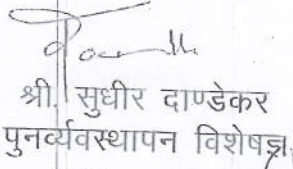 श्री. सुधीर दाण्डेकर
पुनर्व्यवस्थापन विशेषज्ञ